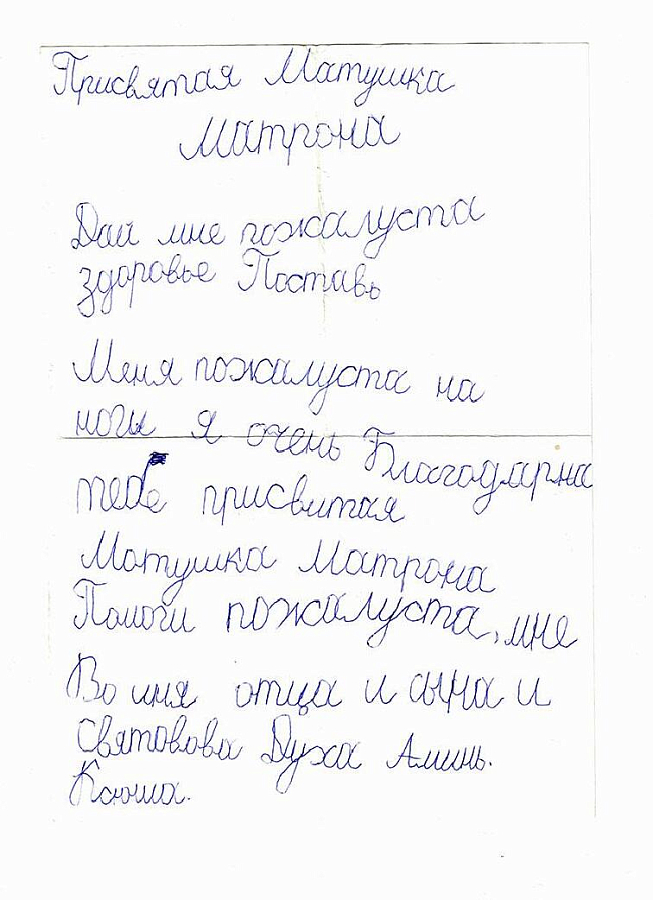 Присвятая Матушка
Матрона
Дай мне пожалуста
здоровье Поставь
Меня пожалуста на
ноги я очень Благодарна
тебе присвитая
Матушка Матрона
Помоги пожалуста, мне
Во имя отца и сына и
Святовова Духа Аминь.
Ксюша.